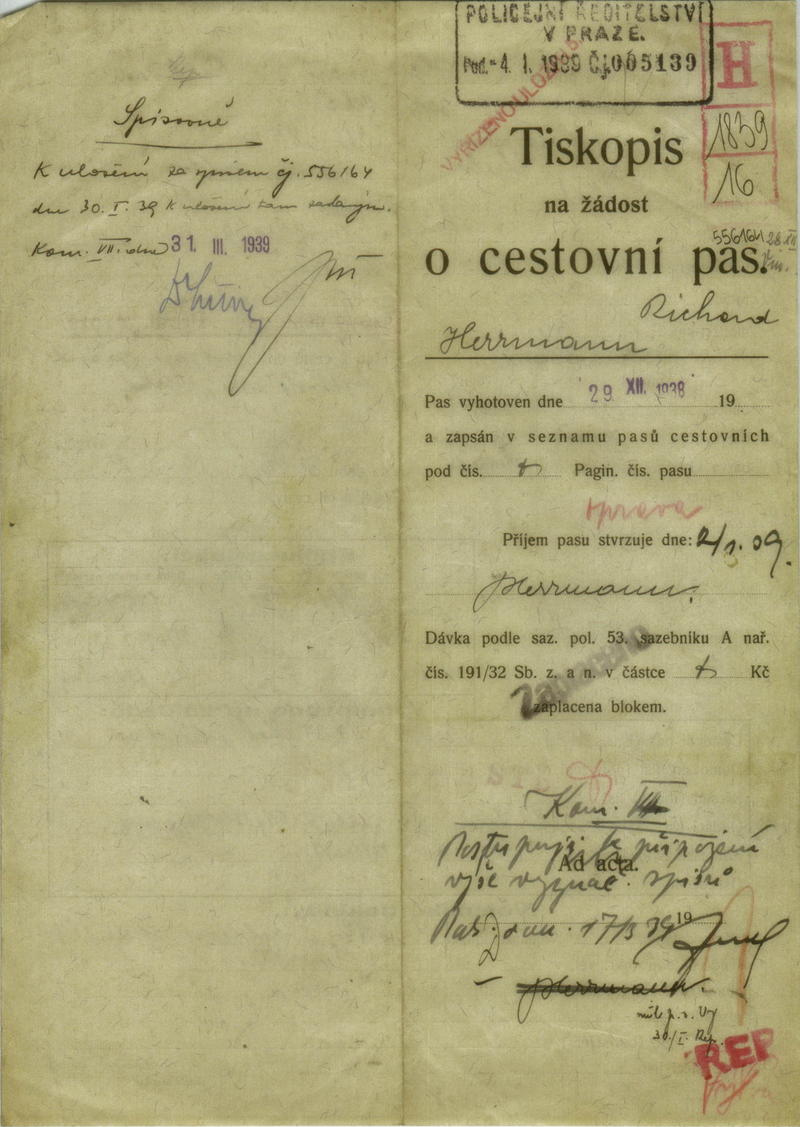 Spisovně
K uložení za spisem čj. 556164
dne 30. I. 39 k uložení tam
Kom. VII. dne 31. III. 1939
POLICEJNÍ ŘEDITELSTVÍ
V PRAZE.
Pod. - 4. I. 1939 Čj. 005139
H
1839
16
Tiskopis
na žádost
556164
o cestovní pas.
Richard
Herrmann
Pas vyhotoven dne 29. XII. 1938 19
a zapsán v seznamu pasů cestovních
pod čís. Pagin. čís. pasu
oprava
Příjem pasu stvrzuje dne: 2/1. 39.
Herrmann.
Dávka podle saz. pol. 53. sazebníku A nař.
čís. 191/32 Sb. z. a n. v částce Kč
zaplacena blokem.
Kom. VII
k připojení
Ad acta.
výše spisů
17/3 39 19
Herrmann.
30/I.
REP